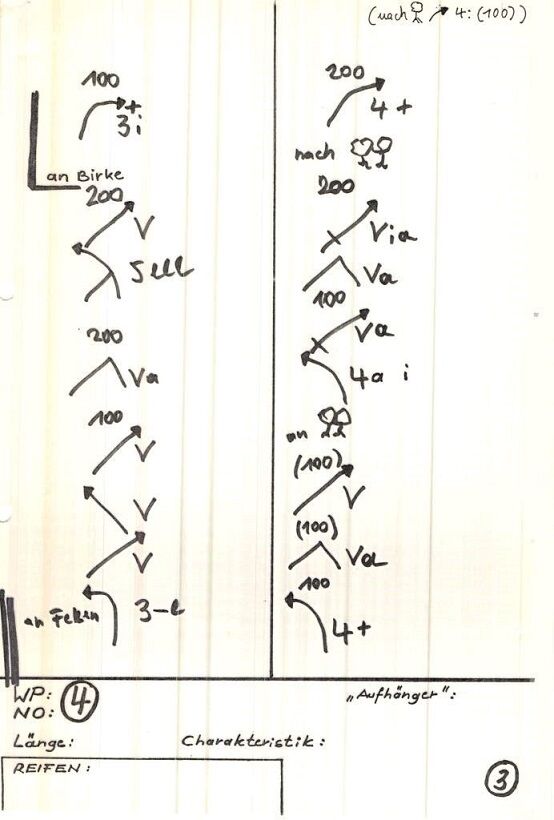 (nach 4: (100))
100
+
3i
an Birke
200
V
5 lll
200
Va
100
V
V
V
an Felsen 3-l
200
4+
nach
200
Via
Va
100
Va
4a i
an
(100)
V
(100)
Va
100
4+
WP: 4
NO:
"Aufhänger":
Länge: Charakteristik:
REIFEN:
3